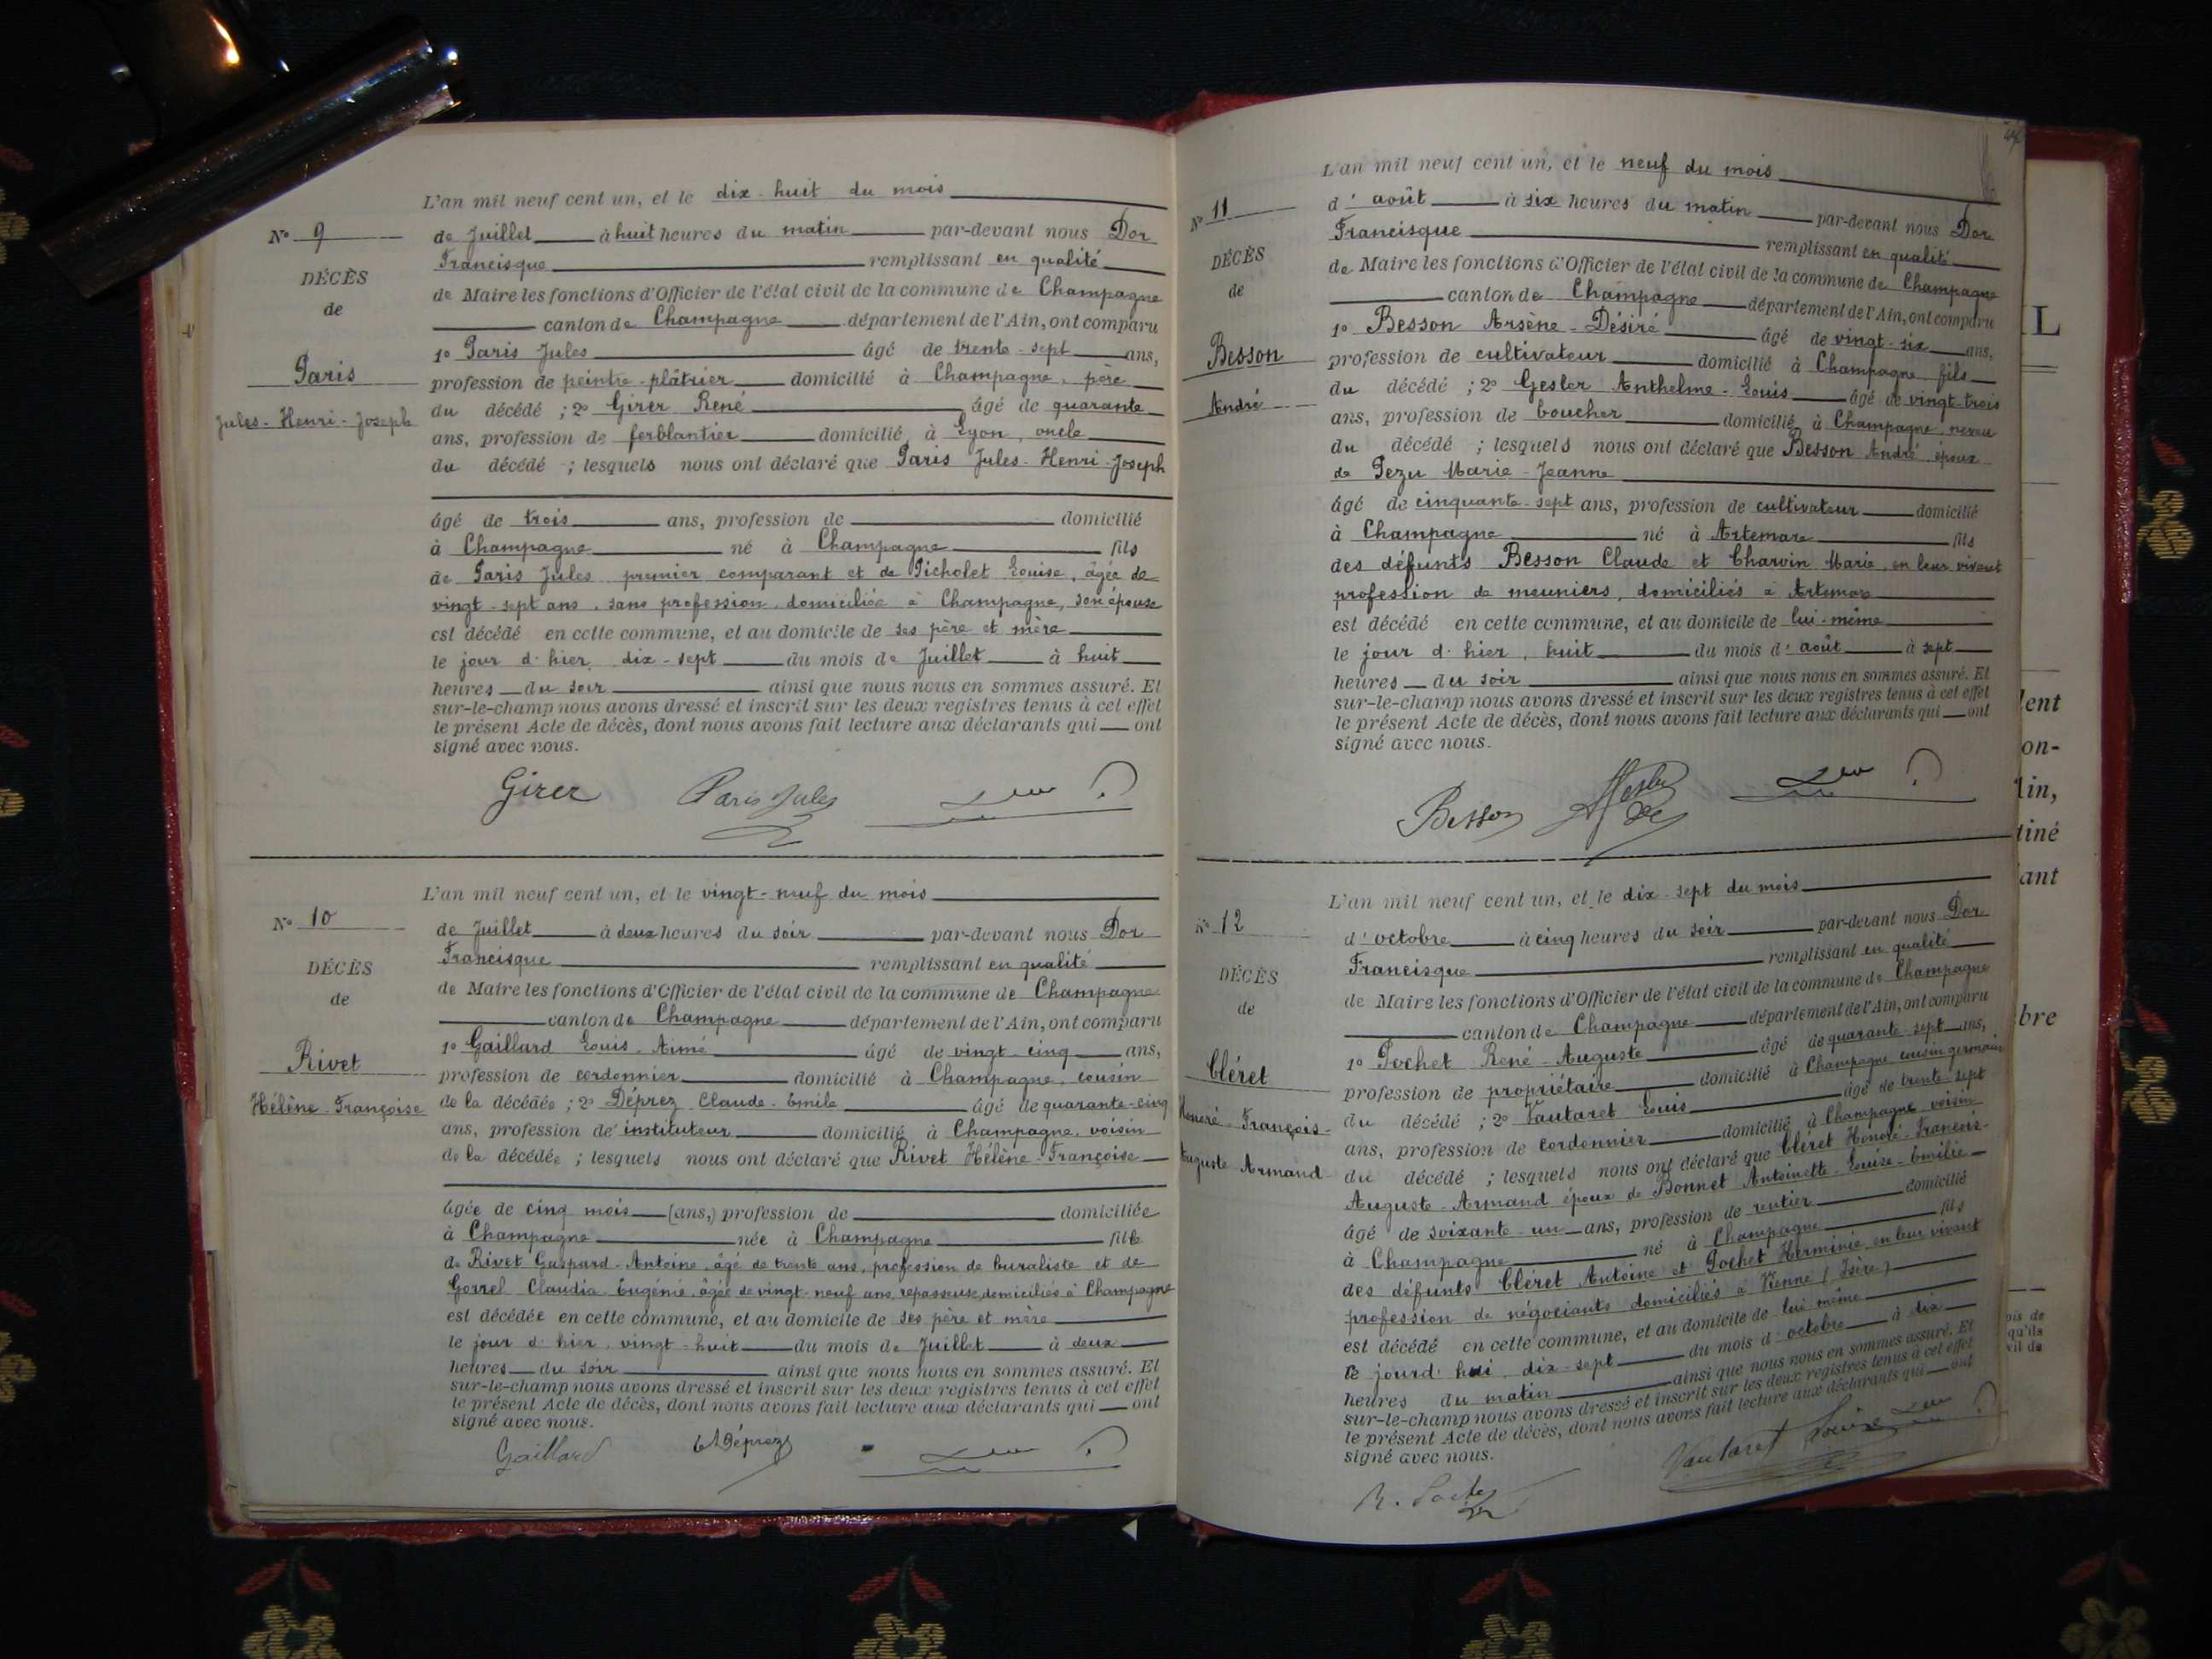 L'an mil neuf cent un, et le dix-huit du mois
N° 9
de Juillet à huit heures du matin par-devant nous Dor
Francisque remplissant en qualité
DÉCÈS
de Maire les fonctions d'Officier de l'état civil de la commune de Champagne
de
canton de Champagne département de l'Ain, ont comparu
1° Paris Jules âgé de trente-sept ans,
Paris
profession de peintre-plâtrier domicilié à Champagne, père
Jules-Henri-Joseph
du décédé ; 2° Girer René âgé de quarante
ans, profession de ferblantier domicilié à Lyon, oncle
du décédé ; lesquels nous ont déclaré que Paris Jules-Henri-Joseph
âgé de trois ans, profession de domicilié
à Champagne né à Champagne fils
de Paris Jules premier comparant et de Picholet Louise, âgée de
vingt-sept ans, sans profession, domiciliée à Champagne, son épouse
est décédé en cette commune, et au domicile de ses père et mère
le jour d'hier, dix-sept du mois de Juillet à huit
heures du soir ainsi que nous nous en sommes assuré. Et
sur-le-champ nous avons dressé et inscrit sur les deux registres tenus à cet effet
le présent Acte de décès, dont nous avons fait lecture aux déclarants qui ont
signé avec nous.
Girer Paris Jules
L'an mil neuf cent un, et le vingt-neuf du mois
N° 10
de Juillet à deux heures du soir par-devant nous Dor
Francisque remplissant en qualité
DÉCÈS
de Maire les fonctions d'Officier de l'état civil de la commune de Champagne
de
canton de Champagne département de l'Ain, ont comparu
1° Gaillard Louis-Aimé âgé de vingt-cinq ans,
Rivet
profession de cordonnier domicilié à Champagne, cousin
Hélène-Françoise
de la décédée ; 2° Déprez Claude-Emile âgé de quarante-cinq
ans, profession de instituteur domicilié à Champagne, voisin
de la décédée ; lesquels nous ont déclaré que Rivet Hélène-Françoise
âgée de cinq mois (ans,) profession de domiciliée
à Champagne née à Champagne fille
de Rivet Gaspard-Antoine, âgé de trente ans, profession de buraliste et de
Gorrel Claudia Eugénie, âgée de vingt-neuf ans, repasseuse, domiciliés à Champagne
est décédée en cette commune, et au domicile de ses père et mère
le jour d'hier, vingt-huit du mois de Juillet à deux
heures du soir ainsi que nous nous en sommes assuré. Et
sur-le-champ nous avons dressé et inscrit sur les deux registres tenus à cet effet
le présent Acte de décès, dont nous avons fait lecture aux déclarants qui ont
signé avec nous.
Gaillard Déprez
L'an mil neuf cent un, et le neuf du mois
N° 11
d'août à six heures du matin par-devant nous Dor
Francisque remplissant en qualité
DÉCÈS
de Maire les fonctions d'Officier de l'état civil de la commune de Champagne
de
canton de Champagne département de l'Ain, ont comparu
1° Besson Arsène-Désiré âgé de vingt-six ans,
Besson
profession de cultivateur domicilié à Champagne fils
André
du décédé ; 2° Gesler Anthelme-Louis âgé de vingt-trois
ans, profession de boucher domicilié à Champagne neveu
du décédé ; lesquels nous ont déclaré que Besson André époux
de Pezu Marie-Jeanne
âgé de cinquante-sept ans, profession de cultivateur domicilié
à Champagne né à Artemare fils
des défunts Besson Claude et Charvin Marie, en leur vivant
profession de meuniers, domiciliés à Artemare
est décédé en cette commune, et au domicile de lui-même
le jour d'hier, huit du mois d'août à sept
heures du soir ainsi que nous nous en sommes assuré. Et
sur-le-champ nous avons dressé et inscrit sur les deux registres tenus à cet effet
le présent Acte de décès, dont nous avons fait lecture aux déclarants qui ont
signé avec nous.
Besson
L'an mil neuf cent un, et le dix-sept du mois
N° 12
d'octobre à cinq heures du soir par-devant nous Dor
Francisque remplissant en qualité
DÉCÈS
de Maire les fonctions d'Officier de l'état civil de la commune de Champagne
de
canton de Champagne département de l'Ain, ont comparu
1° Pochet René-Auguste âgé de quarante-sept ans,
Cléret
profession de propriétaire domicilié à Champagne cousin germain
Honoré-François-
du décédé ; 2° Vautaret Louis âgé de trente-sept
ans, profession de cordonnier domicilié à Champagne voisin
Auguste-Armand
du décédé ; lesquels nous ont déclaré que Cléret Honoré-François-
Auguste-Armand époux de Bonnet Antoinette-Louise-Emilie
âgé de soixante-un ans, profession de rentier domicilié
à Champagne né à Champagne fils
des défunts Cléret Antoine et Pochet Herminie, en leur vivant
profession de négociants domiciliés à Vienne (Isère)
est décédé en cette commune, et au domicile de lui même
le jourd'hui, dix-sept du mois d'octobre à dix
heures du matin ainsi que nous nous en sommes assuré. Et
sur-le-champ nous avons dressé et inscrit sur les deux registres tenus à cet effet
le présent Acte de décès, dont nous avons fait lecture aux déclarants qui ont
signé avec nous.
Vautaret Louis
IL
lent
on-
lin,
tiné
ant
bre
ois de
qu'ils
vil de